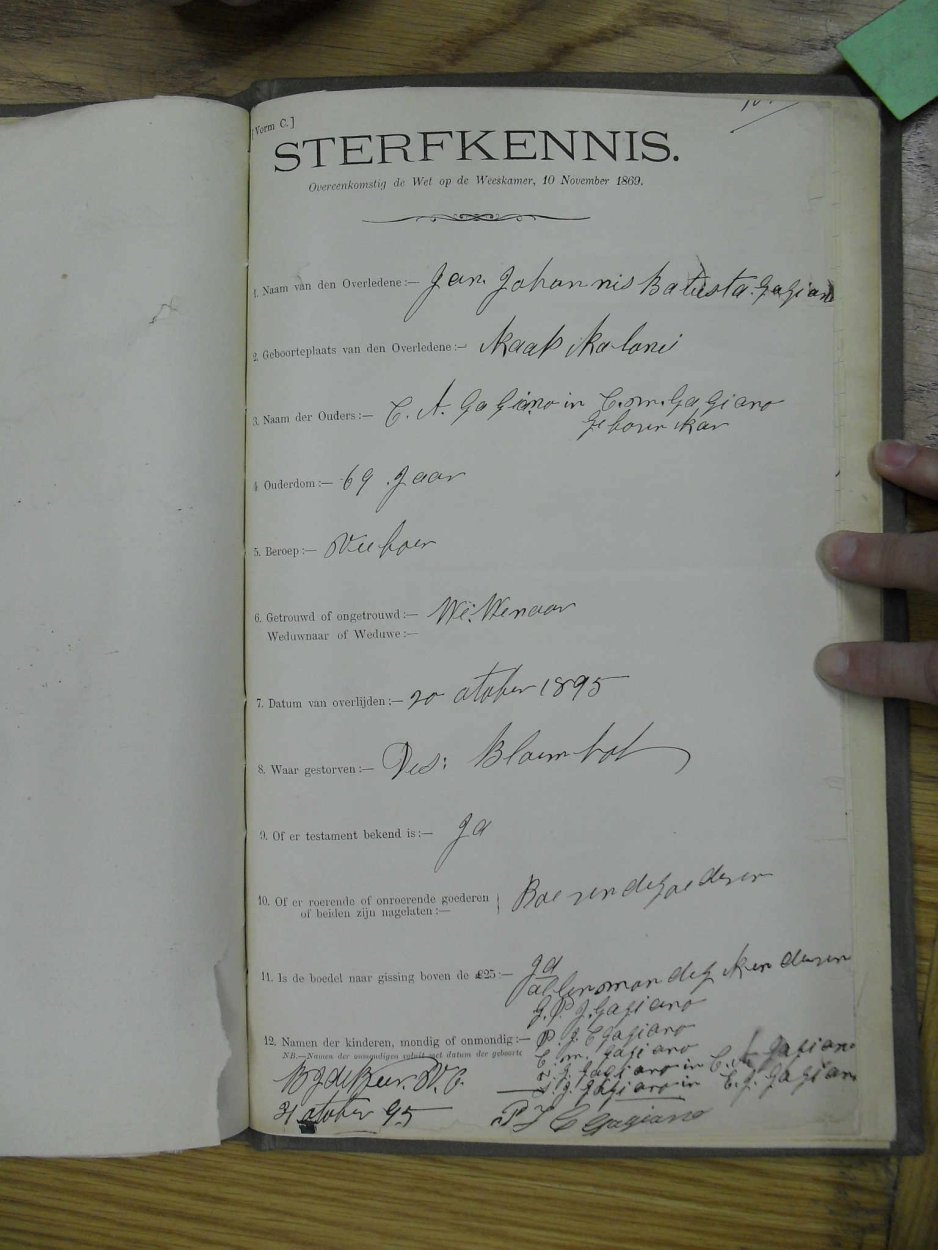 [Vorm C.]
STERFKENNIS.
Overeenkomstig de Wet op de Weeskamer, 10 November 1869.
1. Naam van den Overledene:— Jan Johannis Batista Gagiano
2. Geboorteplaats van den Overledene:— Kaap Kaloni
3. Naam der Ouders:— C. A. Gagiano in C. M. Gagiano
geboren
4. Ouderdom:— 69 Jaar
5. Beroep:— Vee boer
6. Getrouwd of ongetrouwd:— We Wenaar
Weduwnaar of Weduwe:—
7. Datum van overlijden:— 20 otober 1895
8. Waar gestorven:— Des: Bloemhof
9. Of er testament bekend is:— Ja
10. Of er roerende of onroerende goederen
of beiden zijn nagelaten:— Roerende goederen
11. Is de boedel naar gissing boven de £25:— Ja
12. Namen der kinderen, mondig of onmondig:—
J. P. J. Gagiano
P. J. C Gagiano
C. M. Gagiano
J. Gagiano in C. Gagiano
J. Gagiano in C. J. Gagiano
NB.—Namen der onmondigen voluit met datum der geboorte
21 otober 95
P J C Gagiano